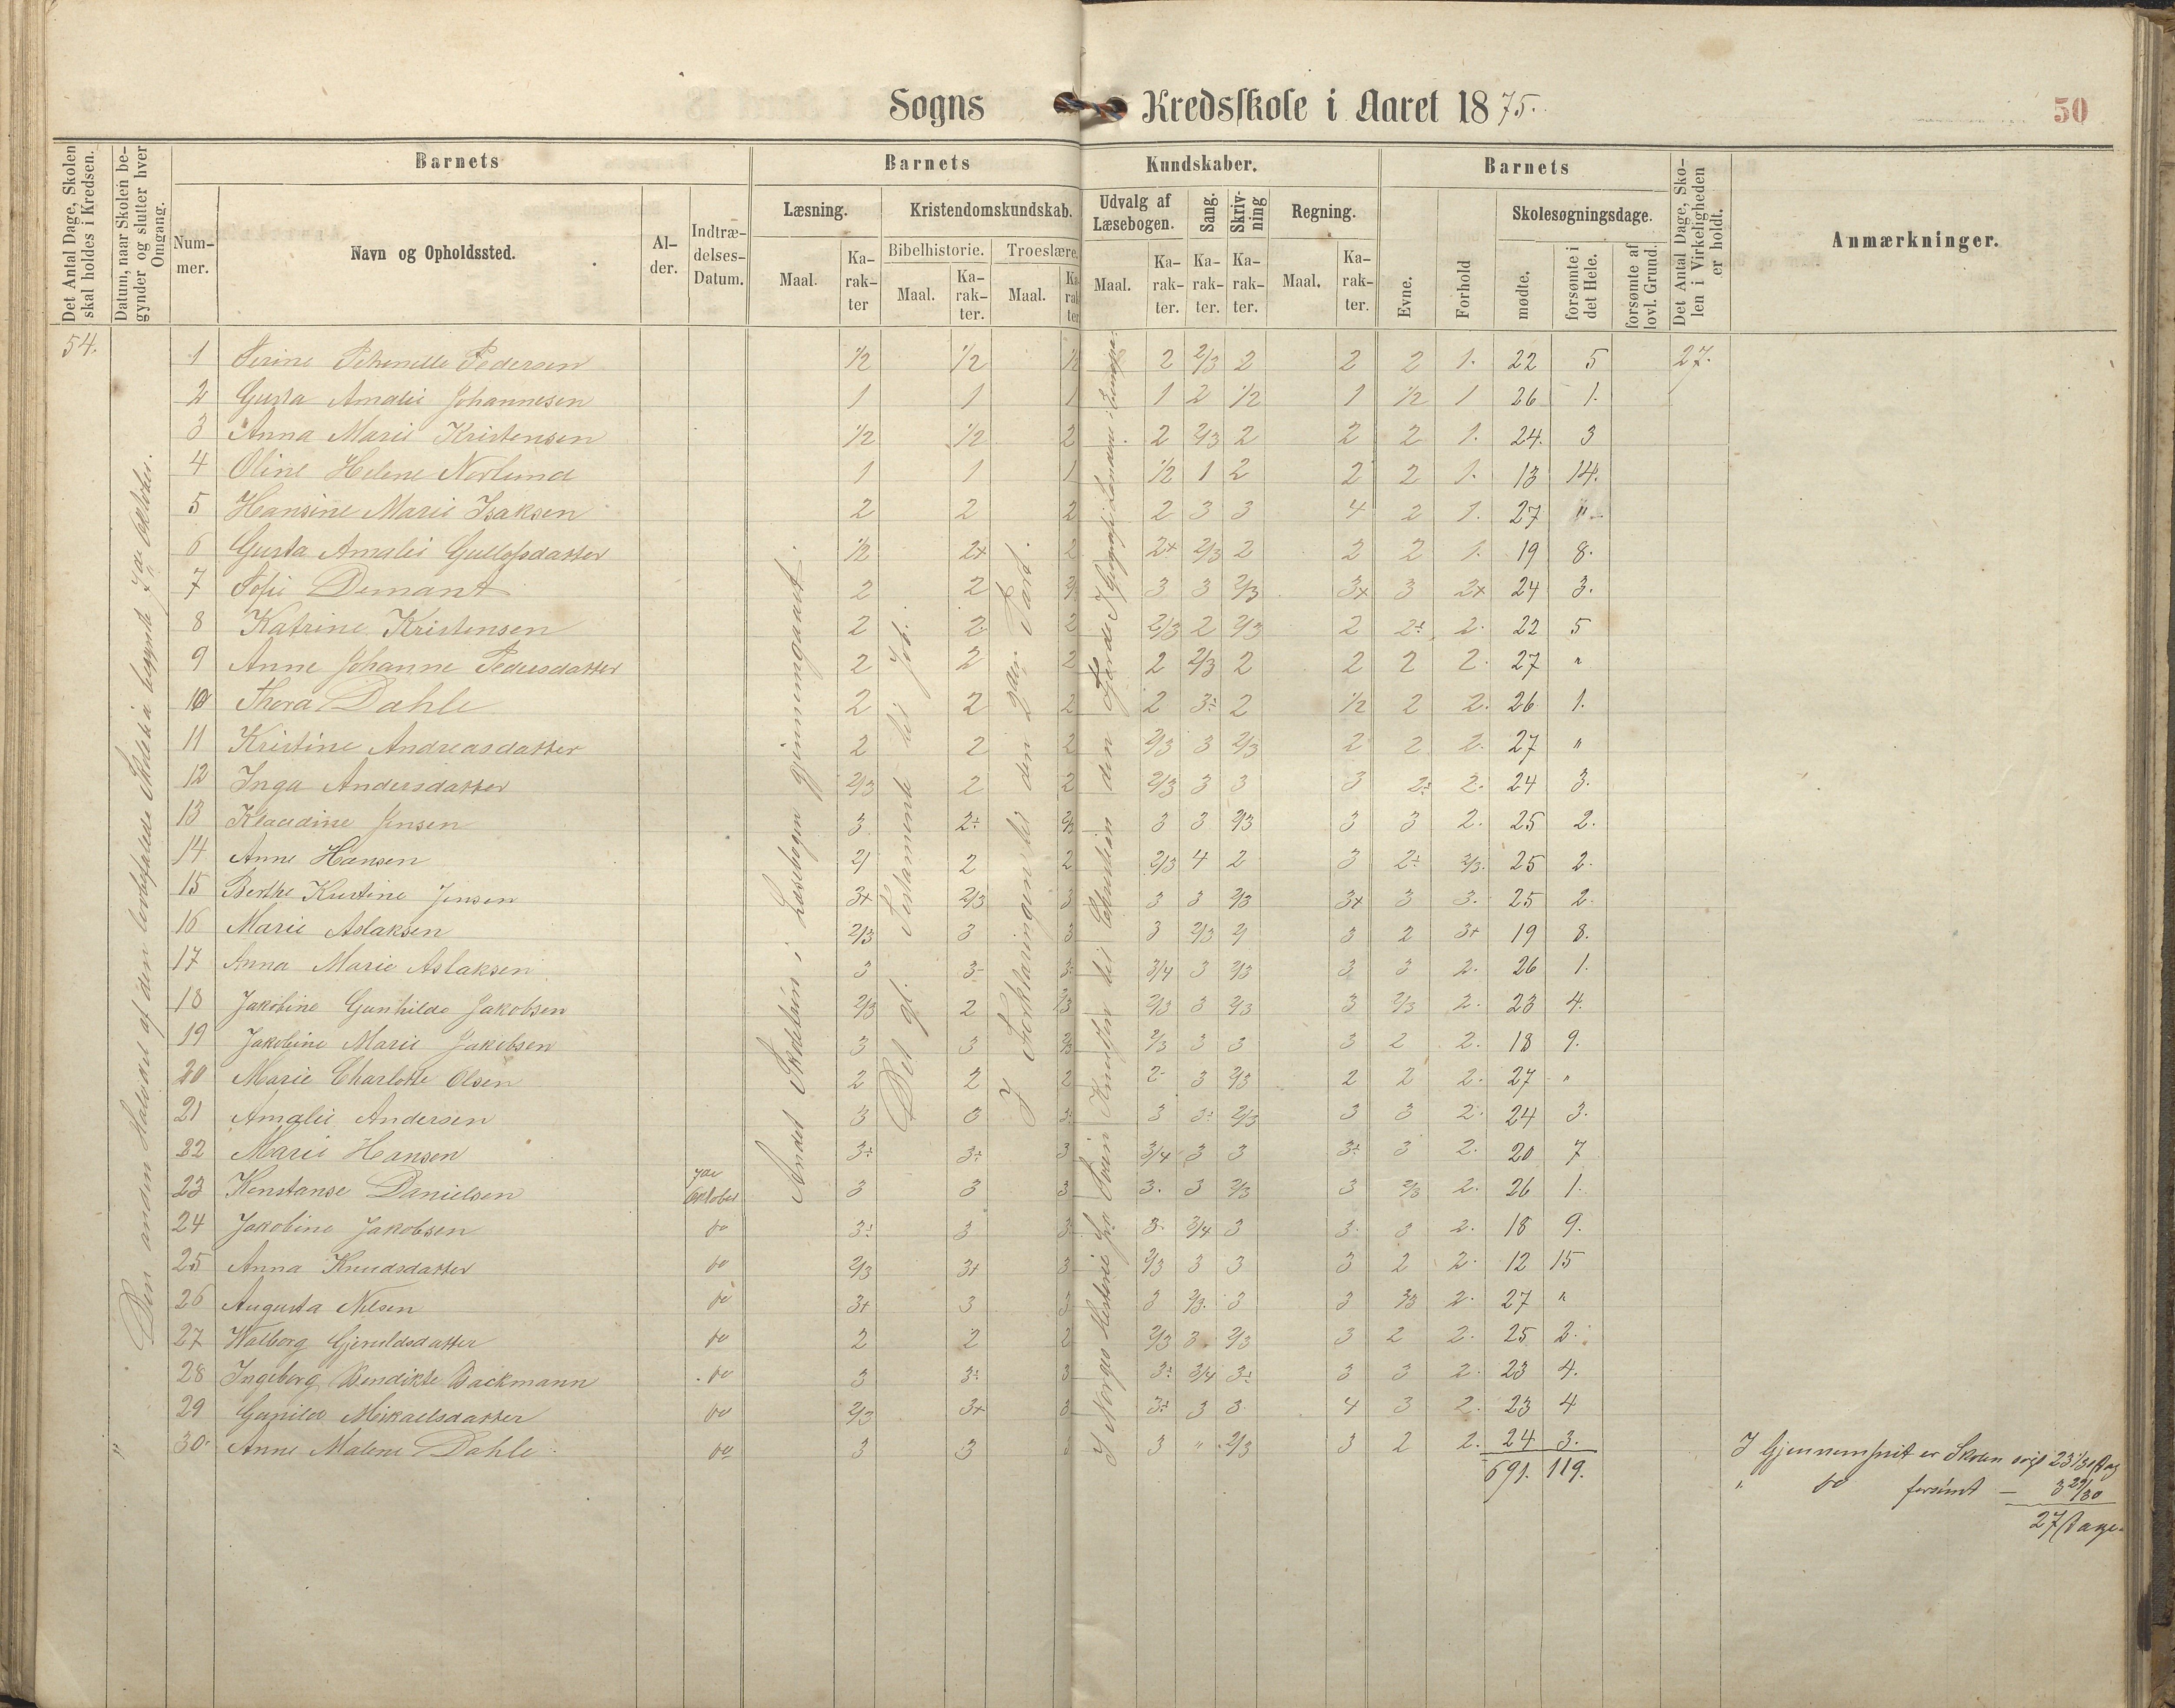 Sogns Kredsskole i Aaret 1875. 50
Det Antal Dage, Skolen skal holdes i Kredsen.
Datum, naar Skolen begynder og slutter hver Omgang.
Barnets Barnets Kundskaber. Barnets
Det Antal Dage, Skolen i Virkeligheden er holdt.
Anmærkninger.
Nummer. Navn og Opholdssted. Alder. Indtrædelses-Datum.
Læsning. Kristendomskundskab. Udvalg af Læsebogen. Sang. Skrivning Regning. Evne. Forhold Skolesøgningsdage.
Bibelhistorie. Troeslære.
Maal. Karakter Maal. Karakter. Maal. Karakter Maal. Karakter. Karakter. Karakter. Maal. Karakter. mødte. forsømte i det Hele. forsømte af lovl. Grund.
54.
Den anden Halvdel af den lovbefalede Skoletid begyndte 7de Oktober.
Andet Skoletrin i Læsebogen gjennemgaaet.
Det gl. Testamente til Job.
I Forklaringen til den 2den Part.
1 Serine Pedersen 1/2 1/2 1/2 2 2/3 2 2 2 1. 22 5 27.
2 Gusta Amalie Johannesen 1 1 1 1 2 1/2 1 1/2 1 26 1.
3 Anna Marie Kristensen 1/2 1/2 2 2 2/3 2 2 2 1. 24. 3
4 Oline Helene Norlund 1 1 1 1/2 1 2 2 2 1. 13 14.
5 Hansine Marie Isaksen 2 2 2 2 3 3 4 2 1. 27 "
6 Gusta Amalie Gullofsdatter 1/2 2+ 2 2+ 2/3 2 2 2 1. 19 8.
7 Sofie Demant 2 2 2/ 3 3 2/3 3+ 3 2+ 24 3.
8 Katrine Kristensen 2 2 2 2/3 2 2/3 2 2÷ 2. 22 5
9 Anne Johanne Pedersdatter 2 2 2 2 2/3 2 2 2 2. 27 "
10 Thora Dahle 2 2 2 2 3÷ 2 1/2 2 2. 26 1.
11 Kristine Andreasdatter 2 2 2 2/3 3 2/3 2 2 2. 27 "
12 Inga Andersdatter 2/3 2 2 2/3 3 3 3 2÷ 2. 24 3.
13 Klaudine Jensen 3 2÷ 2/3 3 3 2/3 3 3 2. 25 2.
14 Anne Hansen 2/ 2 2 2/3 4 2 3 2÷ 2/3. 25 2.
15 Berthe Kristine Jensen 3+ 2/3 3 3 3 2/3 3+ 3 3. 25 2
16 Marie Aslaksen 2/3 3 3 3 2/3 2/ 3 2 3+ 19 8.
17 Anna Marie Aslaksen 3 3- 3÷ 3/4 3 2/3 3 3 2. 26 1.
18 Jakobine Gunhilde Jakobsen 2/3 2 2/3 2/3 3 2/3 3 2/3 2. 23 4.
19 Jakobine Marie Jakobsen 3 3 2/3 2/3 3 3 3 2 2. 18 9.
20 Marie Charlotte Olsen 2 2 2 2- 3 2/3 2 2 2. 27 "
21 Amalie Andersen 3 3 3÷ 3 3÷ 2/3 3 3 2. 24 3.
22 Marie Hansen 3÷ 3÷ 3 3/4 3 3 3÷ 3 2. 20 7
23 Konstanse Danielsen 7de Oktober 3 3 3 3. 3 2/3 3 2/3 2. 26 1.
24 Jakobine Jakobsen do 3÷ 3 3 3 3/4 3 3 3 2. 18 9.
25 Anna Knudsdatter do 2/3 3+ 3 2/3 3 3 3 2 2. 12 15
26 Augusta Nilsen do 3+ 3 3 3 2/3. 3 3 2/3 2. 27 "
27 Walborg Gjeruldsdatter do 2 2 2 2/3 3 2/3 3 2 2. 25 2.
28 Ingeborg Bendikte Backmann do 3 3÷ 3 3÷ 3/4 3÷ 3 3 2. 23 4.
29 Gunild Mikaelsdatter do 2/3 3+ 3 3÷ 3 3 4 3 2. 23 4
30. Anne Malene Dahle do 3 3 3 3 " 2/3 3 2 2. 24 3.
691. 119.
I Gjennemsnit er Skolen søgt 23 1/30 Dag
" do forsømt — 3 29/30
27 Dage.